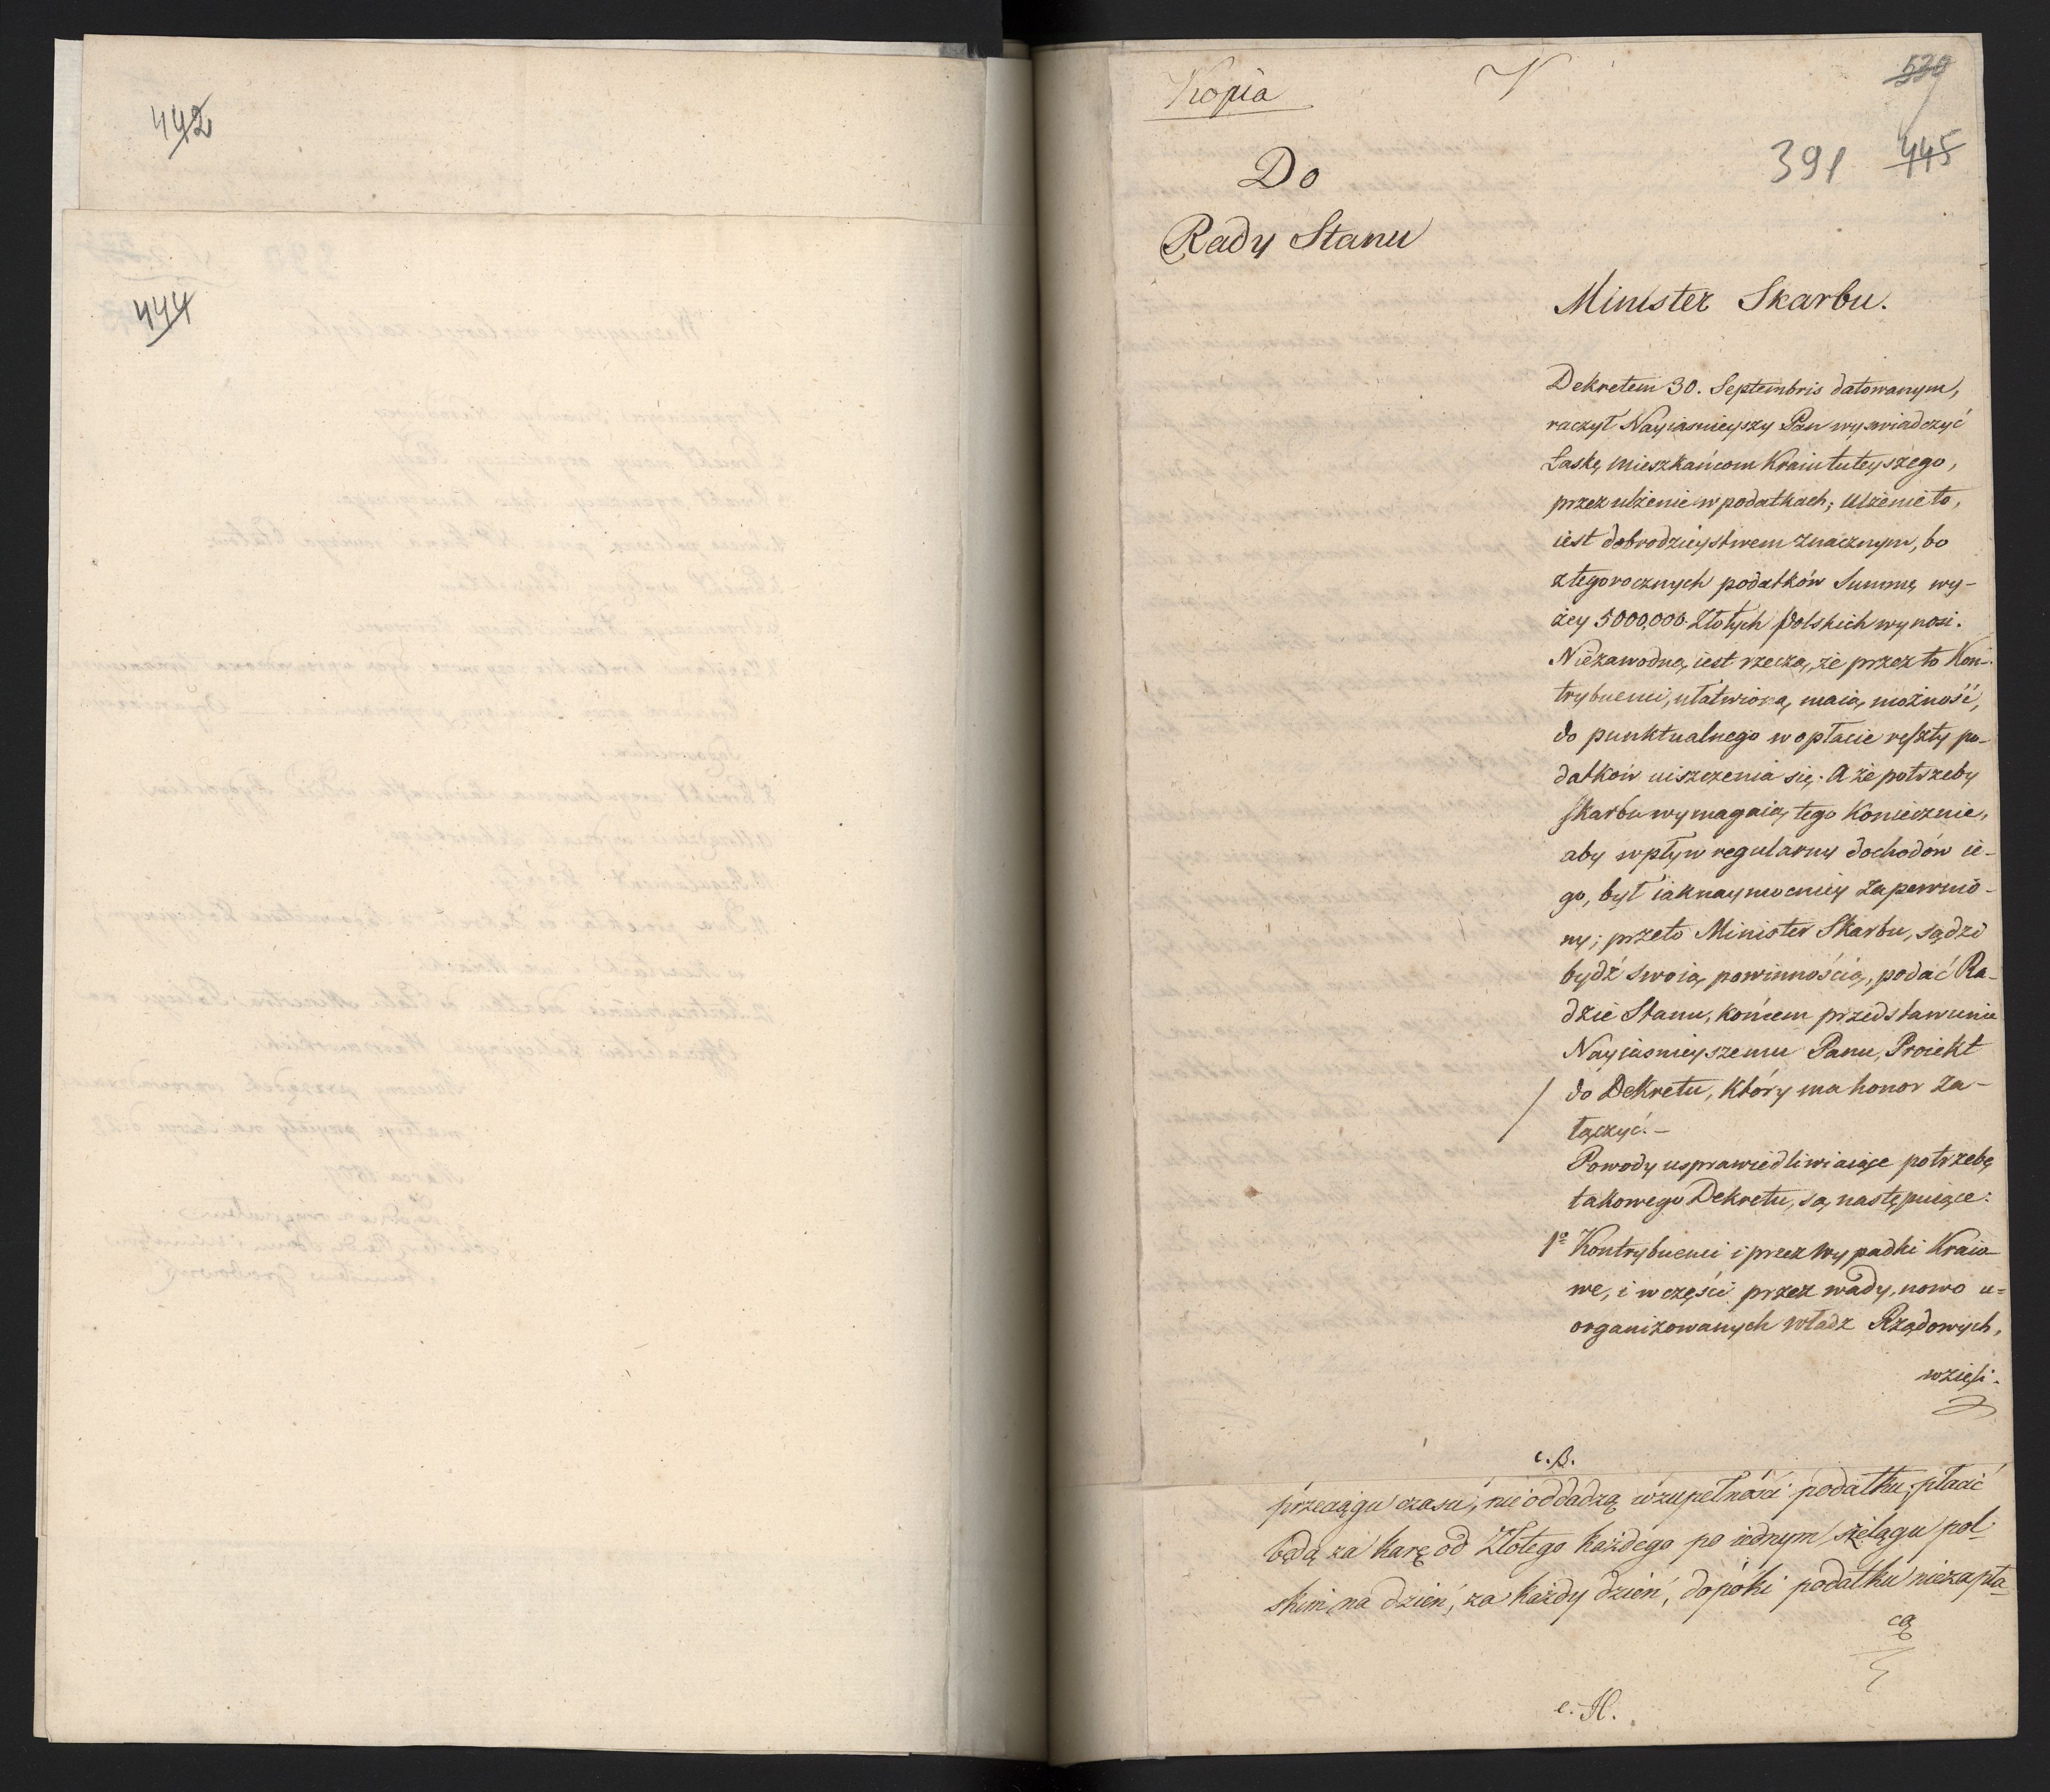 442
444
Kopia
V
539
391 445
Do
Rady Stanu
Minister Skarbu.
Dekretem 30. Septembris datowanym,
raczył Nayiasnieyszy Pan wyswiadczyć
Łaskę mieszkańcom Kraiu tuteyszego,
przez ulżenie w podatkach; Ulżenie to,
iest dobrodzieystwem znacznym, bo
z tegorocznych podatków Summę wy-
żey 5000,000. Złotych Polskich wynosi.
Niezawodną iest rzeczą, że przez to Kon-
trybuenci, ułatwioną maią możność,
do punktualnego w opłacie reszty po-
datków uiszczenia się. A że potrzeby
skarbu wymagaią tego koniecznie,
aby wpływ regularny dochodów ie-
go, był iaknaymocniey zapewnio-
ny; przeto Minister Skarbu, sądzi
bydź swoią powinnością, podać Ra-
dzie Stanu, końcem przedstawienia
Nayiasnieyszemu Panu, Proiekt
/ do Dekretu, który ma honor za-
łączyć. -
Powody usprawiedliwiaiące potrzebę
takowego Dekretu, są następuiące:
1o Kontrybuenci i przez wypadki Kraio-
we, i w części przez wady, nowo u-
organizowanych władz Rządowych,
wzięli
c. B.
przeciągu czasu, nie oddadzą w zupełności podatku, płacić
będą za karę od Złotego każdego po iednym szelągu pol-
skim na dzień, za każdy dzień, dopóki podatku niezapła-
cą
c. H.